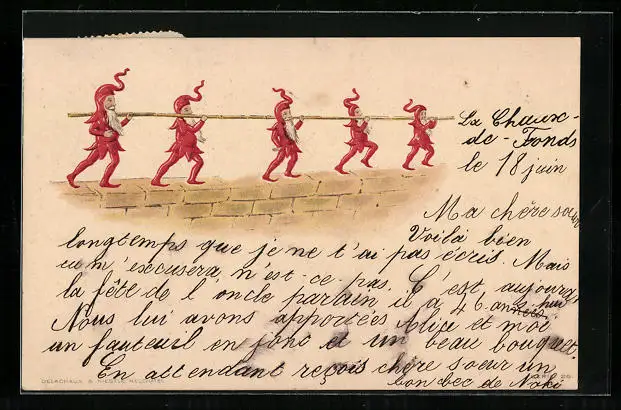 La Chaux-
de-Fonds
le 18 juin
Ma chère soeur
Voilà bien
longtemps que je ne t'ai pas écris. Mais
tu m'excusera n'est-ce pas. C'est aujourd'hui
la fête de l'oncle parrain il a 46 ans
Nous lui avons apportées Alice et moi
un fauteuil en jonc et un beau bouquet.
En attendant reçois chère soeur un
bon bec de Noki
DELACHAUX & NIESTLÉ NEUCHATEL